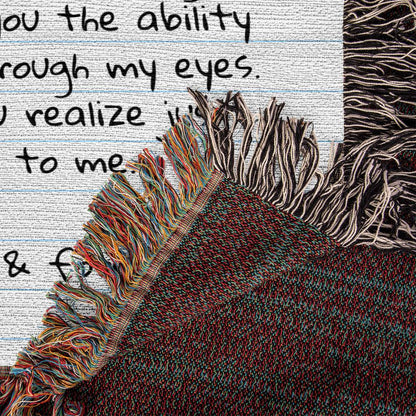 you the ability
rough my eyes.
realize
to me.
&